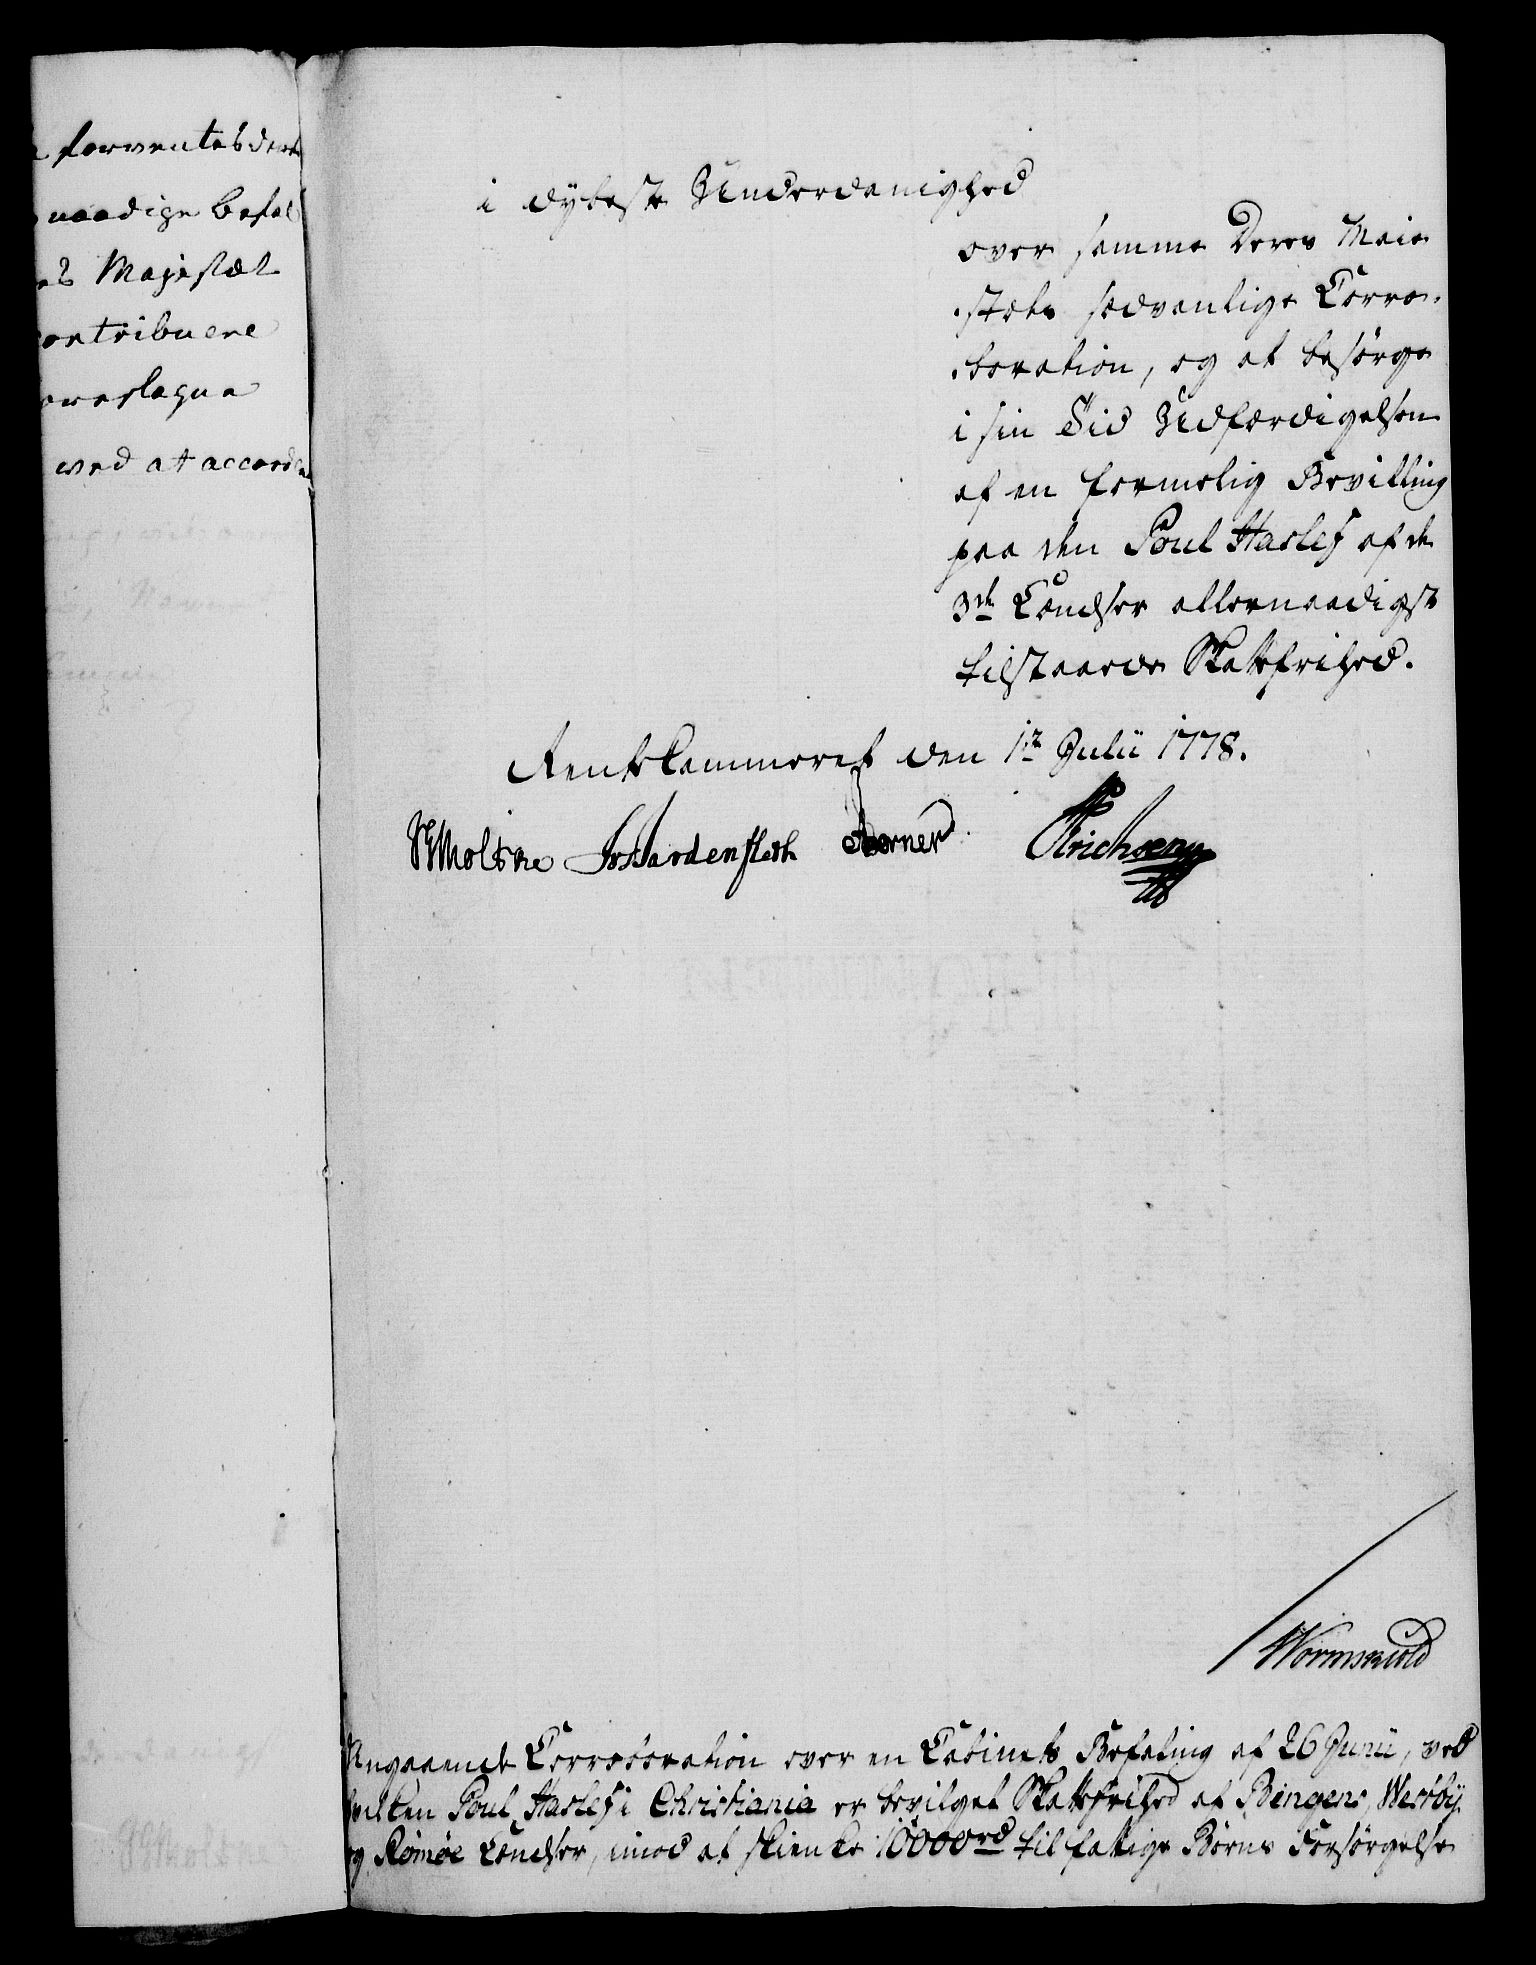 forventes der
naadige befal
es Majestæt
contribuere
oreslagne
ved at accorde
i dybeste Underdanighed
over samme Deres Maie
stæts sædvanlige Corro-
boration, og at besørge
i sin Tid Udfærdigelsen
af en formelig Bevilling
paa den Poul Hasles af de
3de Lændser allernaadigst
tilstaaede Skattefrihed.
Rentekammeret den 1te Julii 1778.
Moltke JvHardenfleth Thorner Erichsen
Wormskiold
Angaaende Corroboration over en Cabinets Befaling af 26 Junii, ved
hvilken Poul Hasles i Christiania er bevilget Skattefrihed af Bingens, Werøby
og Romøe Lændser, imod at skienke 10000rd til fattige Børns Forsørgelse